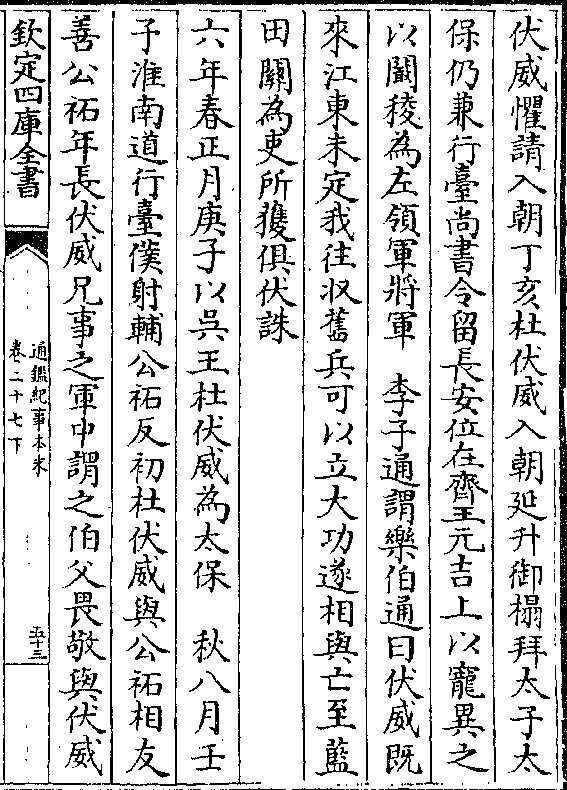 伏威懼請入朝丁亥杜伏威入朝延升御榻拜太子太
保仍兼行臺尚書令留長安位在齊王元吉上以寵異之
以闞稜為左領軍將軍　李子通謂樂伯通曰伏威既
來江東未定我往収舊兵可以立大功遂相與亡至藍
田關為吏所獲俱伏誅
六年春正月庚子以吳王杜伏威為太保　秋八月壬
子淮南道行臺僕射輔公祏反初杜伏威與公祏相友
善公祏年長伏威兄事之軍中謂之伯父畏敬與伏威
欽定四庫全書
通鑑紀事本末
卷二十七下
五十三